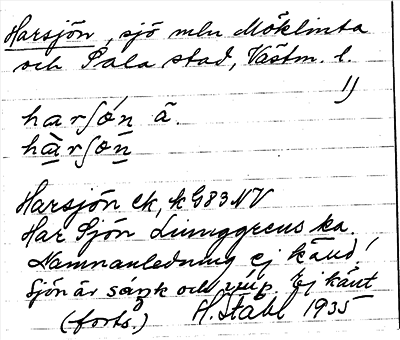 Harsjön, sjö mln Möklinta
och Sala stad, Västm. l.
1)
harʃón ä.
hàrʃòn
Harsjön ek, k G83 NV
Har Sjön Ljunggrens ka.
Namnanledning ej känd!
Sjön är sank och djup. Ej känt
(forts.) H. Ståhl 1935